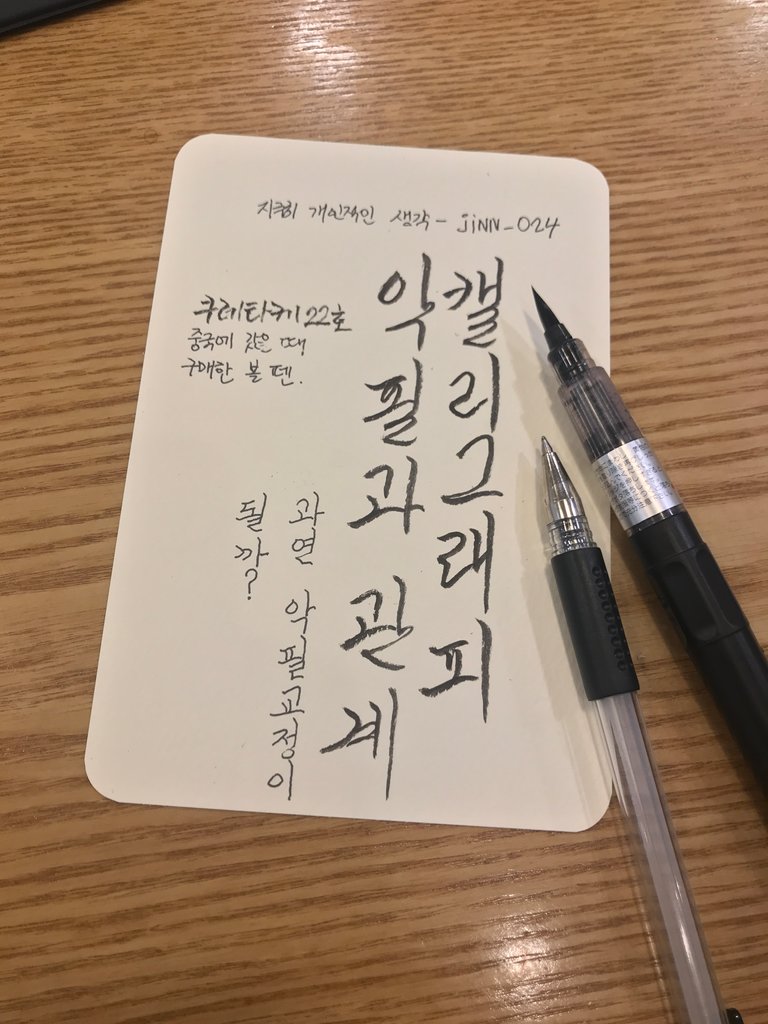 지극히 개인적인 생각 - jiNN_024
캘리그래피
악필과 관계
쿠레타케 22호
중국에 갔을 때
구매한 볼펜.
과연 악필교정이
될까?